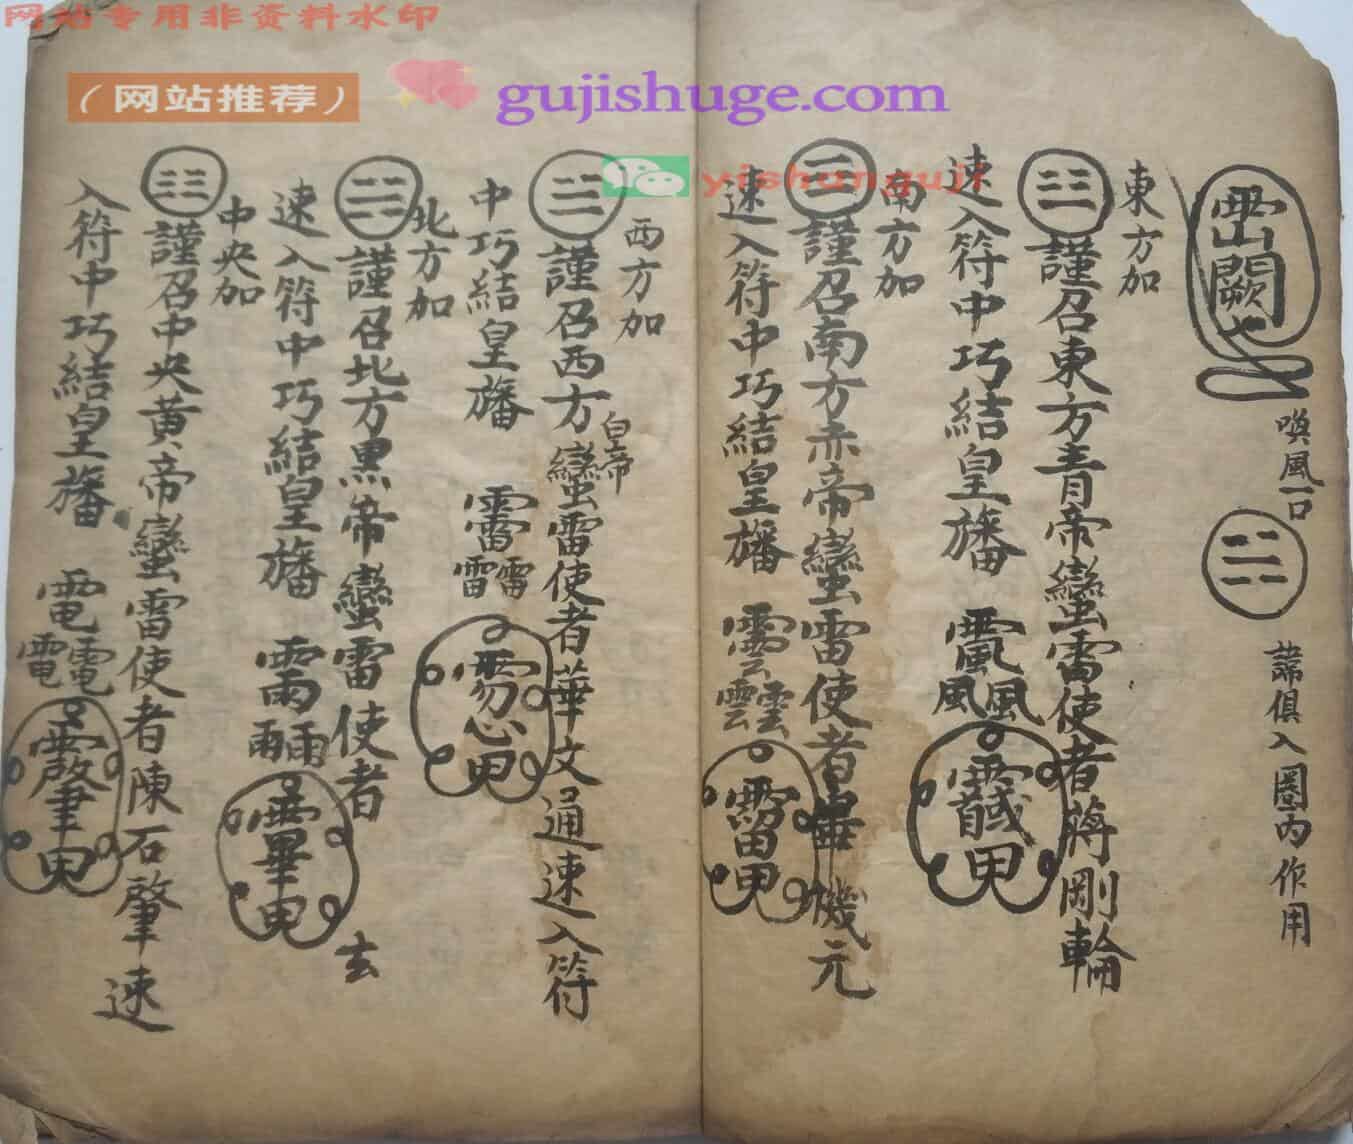 网站专用非资料水印
（网站推荐）
gujishuge.com
yishunguji
喚風一口
諱俱入圈内作用
東方加
謹召東方青帝蠻雷使者蔣剛輪
速入符中巧結皇旛
南方加
謹召南方赤帝蠻雷使者畢機元
速入符中巧結皇旛
西方加
謹召西方白帝蠻雷使者華文通速入符
中巧結皇旛
北方加
謹召北方黑帝蠻雷使者
速入符中巧結皇旛
中央加
謹召中央黃帝蠻雷使者陳石肇速
入符中巧結皇旛